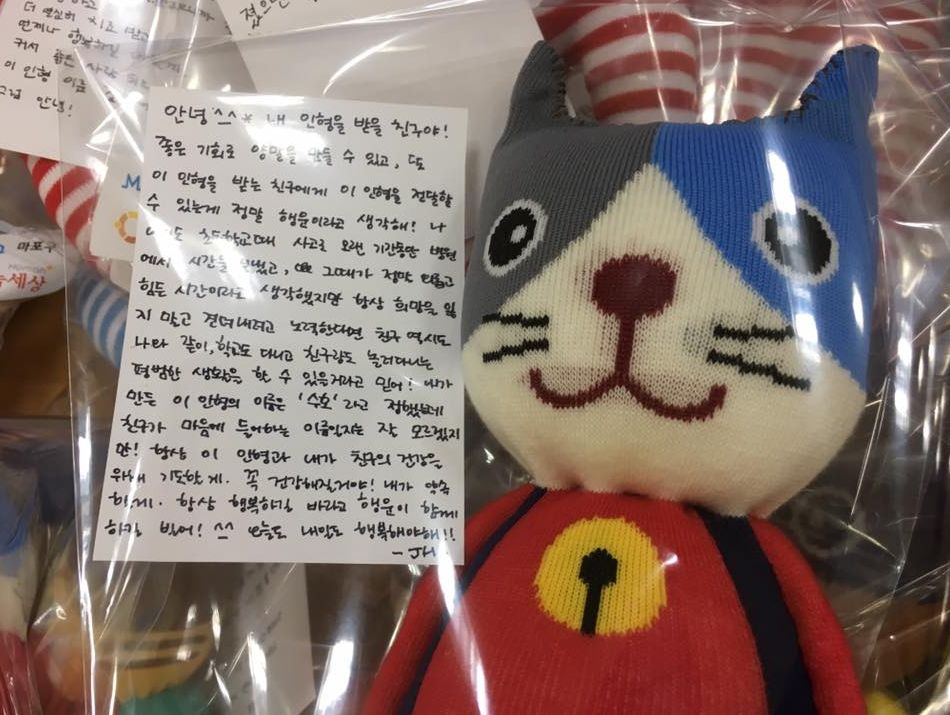 더 열심히 치료 받고
언제나 행복하길
커서 좋은 사람
이 인형 이름
그럼 안녕!
마포구
세상
안녕 ^^* 내 인형을 받을 친구야!
좋은 기회로 양말을 만들 수 있고, 또
이 인형을 받는 친구에게 이 인형을 전달할
수 있는게 정말 행운이라고 생각해! 나
초등학교때 사고로 오랜 기간동안 병원
에서 시간을 보냈고, 그때가 정말 아프고
힘든 시간이라고 생각했지만 항상 희망을 잃
지 말고 견뎌내려고 노력한다면 친구 역시도
나와 같이, 학교도 다니고 친구랑도 놀러다니는
평범한 생활을 할 수 있을거라고 믿어! 내가
만든 이 인형의 이름은 '수호' 라고 정했는데
친구가 마음에 들어하는 이름일지는 잘 모르겠지
만! 항상 이 인형과 내가 친구의 건강을
위해 기도할게. 꼭 건강해질거야! 내가 약속
할게. 항상 행복하길 바라고 행운이 함께
하길 빌어! ^^ 오늘도 내일도 행복해야해!!
- JH